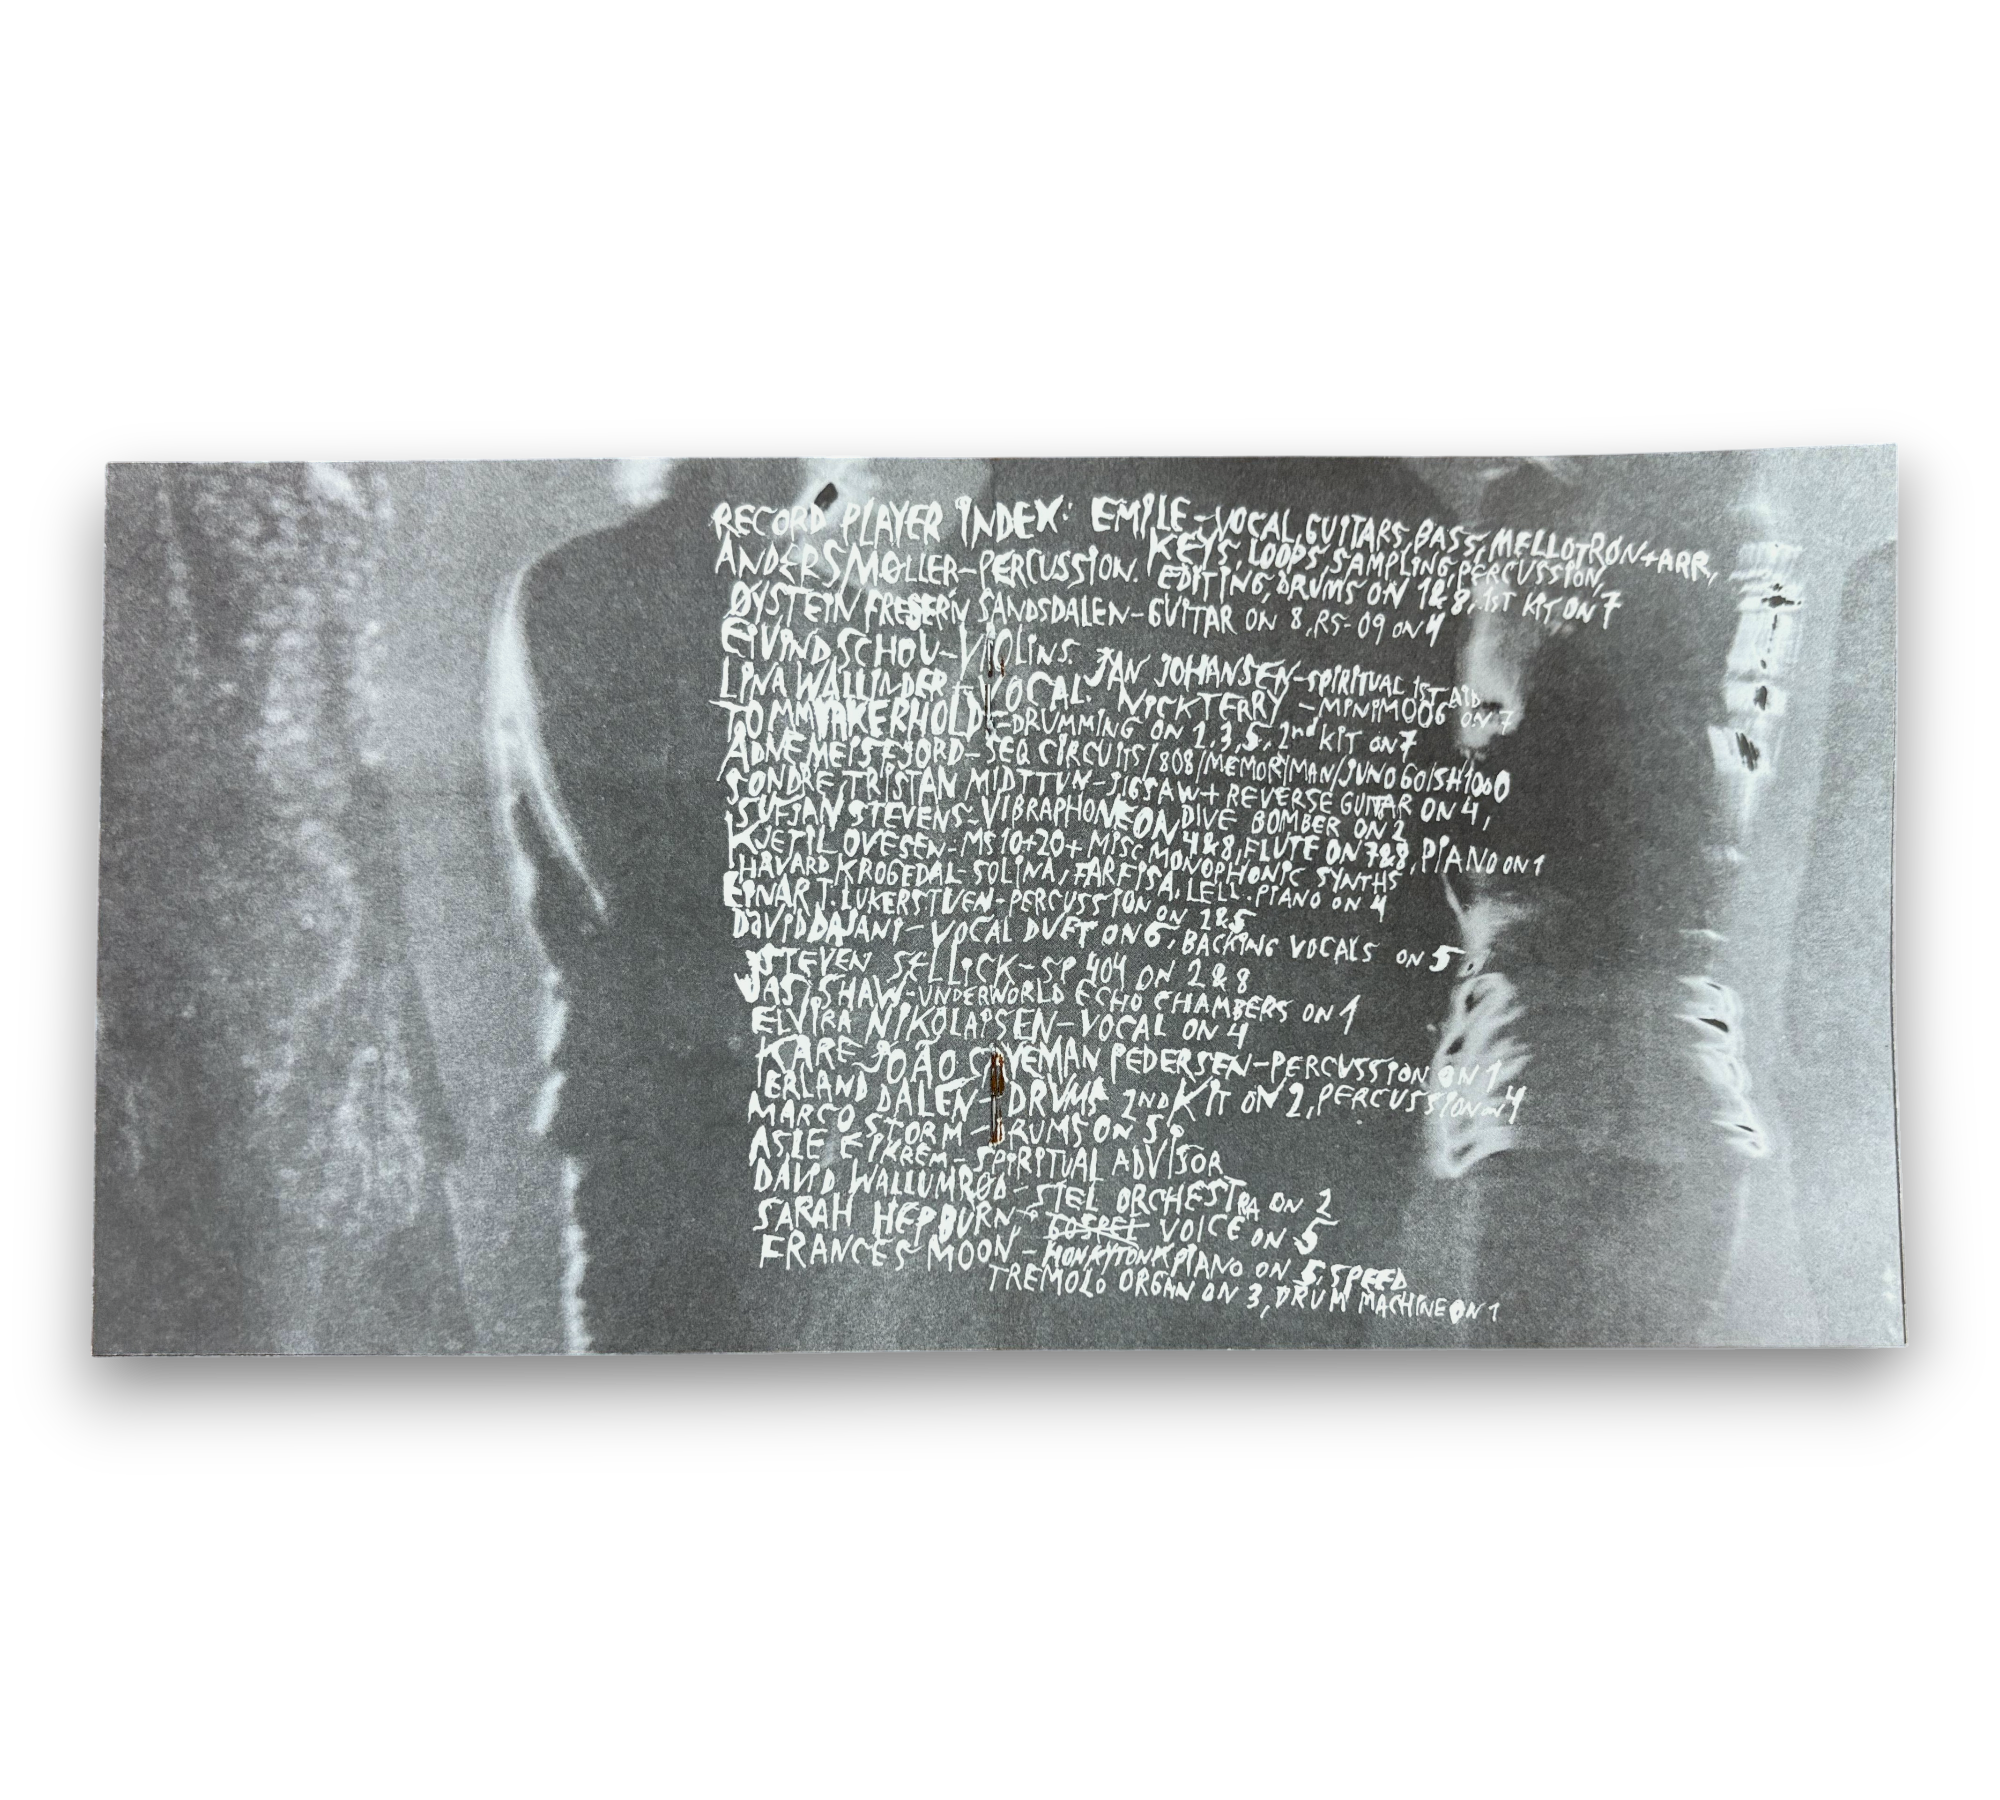 RECORD PLAYER INDEX: EMILE-VOCAL, GUITARS, BASS, MELLOTRON+ARR,
KEYS, LOOPS, SAMPLING, PERCUSSION,
ANDERS MØLLER-PERCUSSION. EDITING, DRUMS ON 1&8, 1ST KIT ON 7
ØYSTEIN FRESERN SANDSDALEN-GUITAR ON 8, RS-09 ON 4
EIVIND SCHOU-VIOLINS. JAN JOHANSEN-SPIRITUAL 1ST AID
LINA WALLINDER-VOCAL. NICK TERRY-MINIMOOG ON 7
TOMMY AKERHOLDT-DRUMMING ON 2,3,5, 2nd KIT ON 7
ADNE MEISFJORD-SEQ CIRCUITS/808/MEMORIMAN/JUNO 60/SH1000
SONDRE TRISTAN MIDTTUN-JIGSAW+REVERSE GUITAR ON 4,
DIVE BOMBER ON 2
SUFJAN STEVENS-VIBRAPHONE ON 4&8, FLUTE ON 7&8, PIANO ON 1
KJETIL OVESEN-MS10+20+MISC MONOPHONIC SYNTHS
HAVARD KROGEDAL-SOLINA, FARFISA, LELL. PIANO ON 4
EINAR T. LUKERSTUEN-PERCUSSION ON 2&5
DAVID DAJANI-VOCAL DUET ON 6, BACKING VOCALS ON 5
STEVEN SELLICK-SP 404 ON 2&8
JAS SHAW-UNDERWORLD ECHO CHAMBERS ON 1
ELVIRA NIKOLAISEN-VOCAL ON 4
KARE JOÃO CAVEMAN PEDERSEN-PERCUSSION ON 1
ERLAND DALEN-DRUMS 2ND KIT ON 2, PERCUSSION ON 4
MARCO STORM-DRUMS ON 5
ASLE EIKREM-SPIRITUAL ADVISOR
DAVID WALLUMRØD-STEL ORCHESTRA ON 2
SARAH HEPBURN-GOSPEL VOICE ON 5
FRANCES MOON-HONKYTONK PIANO ON 5, SPEED
TREMOLO ORGAN ON 3, DRUM MACHINE ON 1